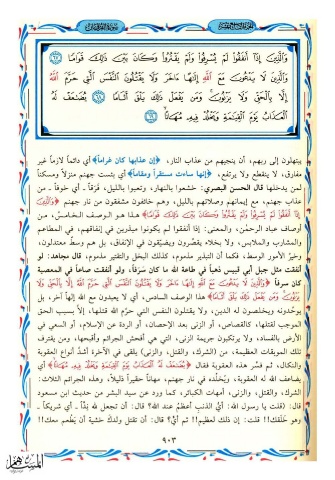 وَالَّذِينَ إِذَا أَنفَقُوا لَمْ يُسْرِفُوا وَلَمْ يَقْتُرُوا وَكَانَ بَيْنَ ذَٰلِكَ قَوَامًا ٦٧
وَالَّذِينَ لَا يَدْعُونَ مَعَ اللَّهِ إِلَٰهًا ءَاخَرَ وَلَا يَقْتُلُونَ النَّفْسَ الَّتِي حَرَّمَ اللَّهُ
إِلَّا بِالْحَقِّ وَلَا يَزْنُونَ وَمَن يَفْعَلْ ذَٰلِكَ يَلْقَ أَثَامًا ٦٨ يُضَاعَفْ لَهُ
الْعَذَابُ يَوْمَ الْقِيَامَةِ وَيَخْلُدْ فِيهِ مُهَانًا ٦٩
يبتهلون إلى ربهم، أن ينجيهم من عذاب النار، ﴿إن عذابها كان غراماً﴾ أي دائماً لازماً غير
مفارق، لا ينقطع ولا يرتفع، ﴿إنها ساءت مستقراً ومقاماً﴾ أي بئست جهنم منزلاً ومسكناً
لمن يدخلها قال الحسن البصري: خشعوا بالنهار، وتعبوا بالليل، فَرَقاً ـ أي خوفاً ـ من
عذاب جهنم، مع إيمانهم وصلاتهم بالليل، وهم خائفون مشفقون من نار جهنم ﴿وَالَّذِينَ
إِذَا أَنفَقُوا لَمْ يُسْرِفُوا وَلَمْ يَقْتُرُوا وَكَانَ بَيْنَ ذَٰلِكَ قَوَامًا﴾ هذا هو الوصف الخامس، من
أوصاف عباد الرحمن، والمعنى: إذا أنفقوا لم يكونوا مبذرين في إنفاقهم، في المطاعم
والمشارب والملابس، ولا بخلاء يقصّرون ويضيّقون في الإنفاق، بل هم وسطٌ معتدلون،
وخيرُ الأمور الوسط، فكما أن التبذير مذموم، كذلك البخل والتقتير مذموم، قال مجاهد: لو
أنفقت مثل جبل أبي قبيس ذهباً في طاعة الله ما كان سَرَفاً، ولو أنفقت صاعاً في المعصية
كان سرفاً ﴿وَالَّذِينَ لَا يَدْعُونَ مَعَ اللَّهِ إِلَٰهًا ءَاخَرَ وَلَا يَقْتُلُونَ النَّفْسَ الَّتِي حَرَّمَ اللَّهُ إِلَّا بِالْحَقِّ وَلَا
يَزْنُونَ وَمَن يَفْعَلْ ذَٰلِكَ يَلْقَ أَثَامًا﴾ هذا الوصف السادس، أي لا يعبدون مع الله إلهاً آخر، بل
يوحّدونه ويخلصون له الدين، ولا يقتلون النفس التي حرّم الله قتلها، إلاَّ بسبب الحق
الموجب لقتلها، كالقصاص، أو الزنى بعد الإحصان، أو الردة عن الإسلام، أو السعي في
الأرض بالفساد، ولا يرتكبون جريمة الزنى، التي هي أفحش الجرائم وأقبحها، ومن يقترف
تلك الموبقات العظيمة، من (الشرك، والقتل، والزنى) يلقى في الآخرة أشدَّ أنواع العقوبة
والنكال، ثم فسَّر هذه العقوبة فقال ﴿يُضَاعَفْ لَهُ الْعَذَابُ يَوْمَ الْقِيَامَةِ وَيَخْلُدْ فِيهِ مُهَانًا﴾ أي
يضاعف الله له العقوبة، ويُخلَّده في نار جهنم، مهاناً حقيراً ذليلاً، وهذه الجرائم الثلاث:
الشرك، والقتل، والزنى، أمهات الكبائر، كما ورد عن سيد البشر من حديث ابن مسعود
قال: (قلت يا رسول الله: أيُّ الذنب أعظم عند الله؟ قال: أن تجعل لله نِدّاً ـ أي شريكاً ـ
وهو خَلَقك!! قلت: إن ذلك لعظيم!! ثم أيُّ؟ قال: أن تقتل ولدك خشية أن يَطْعم معك!!
٩٠٣